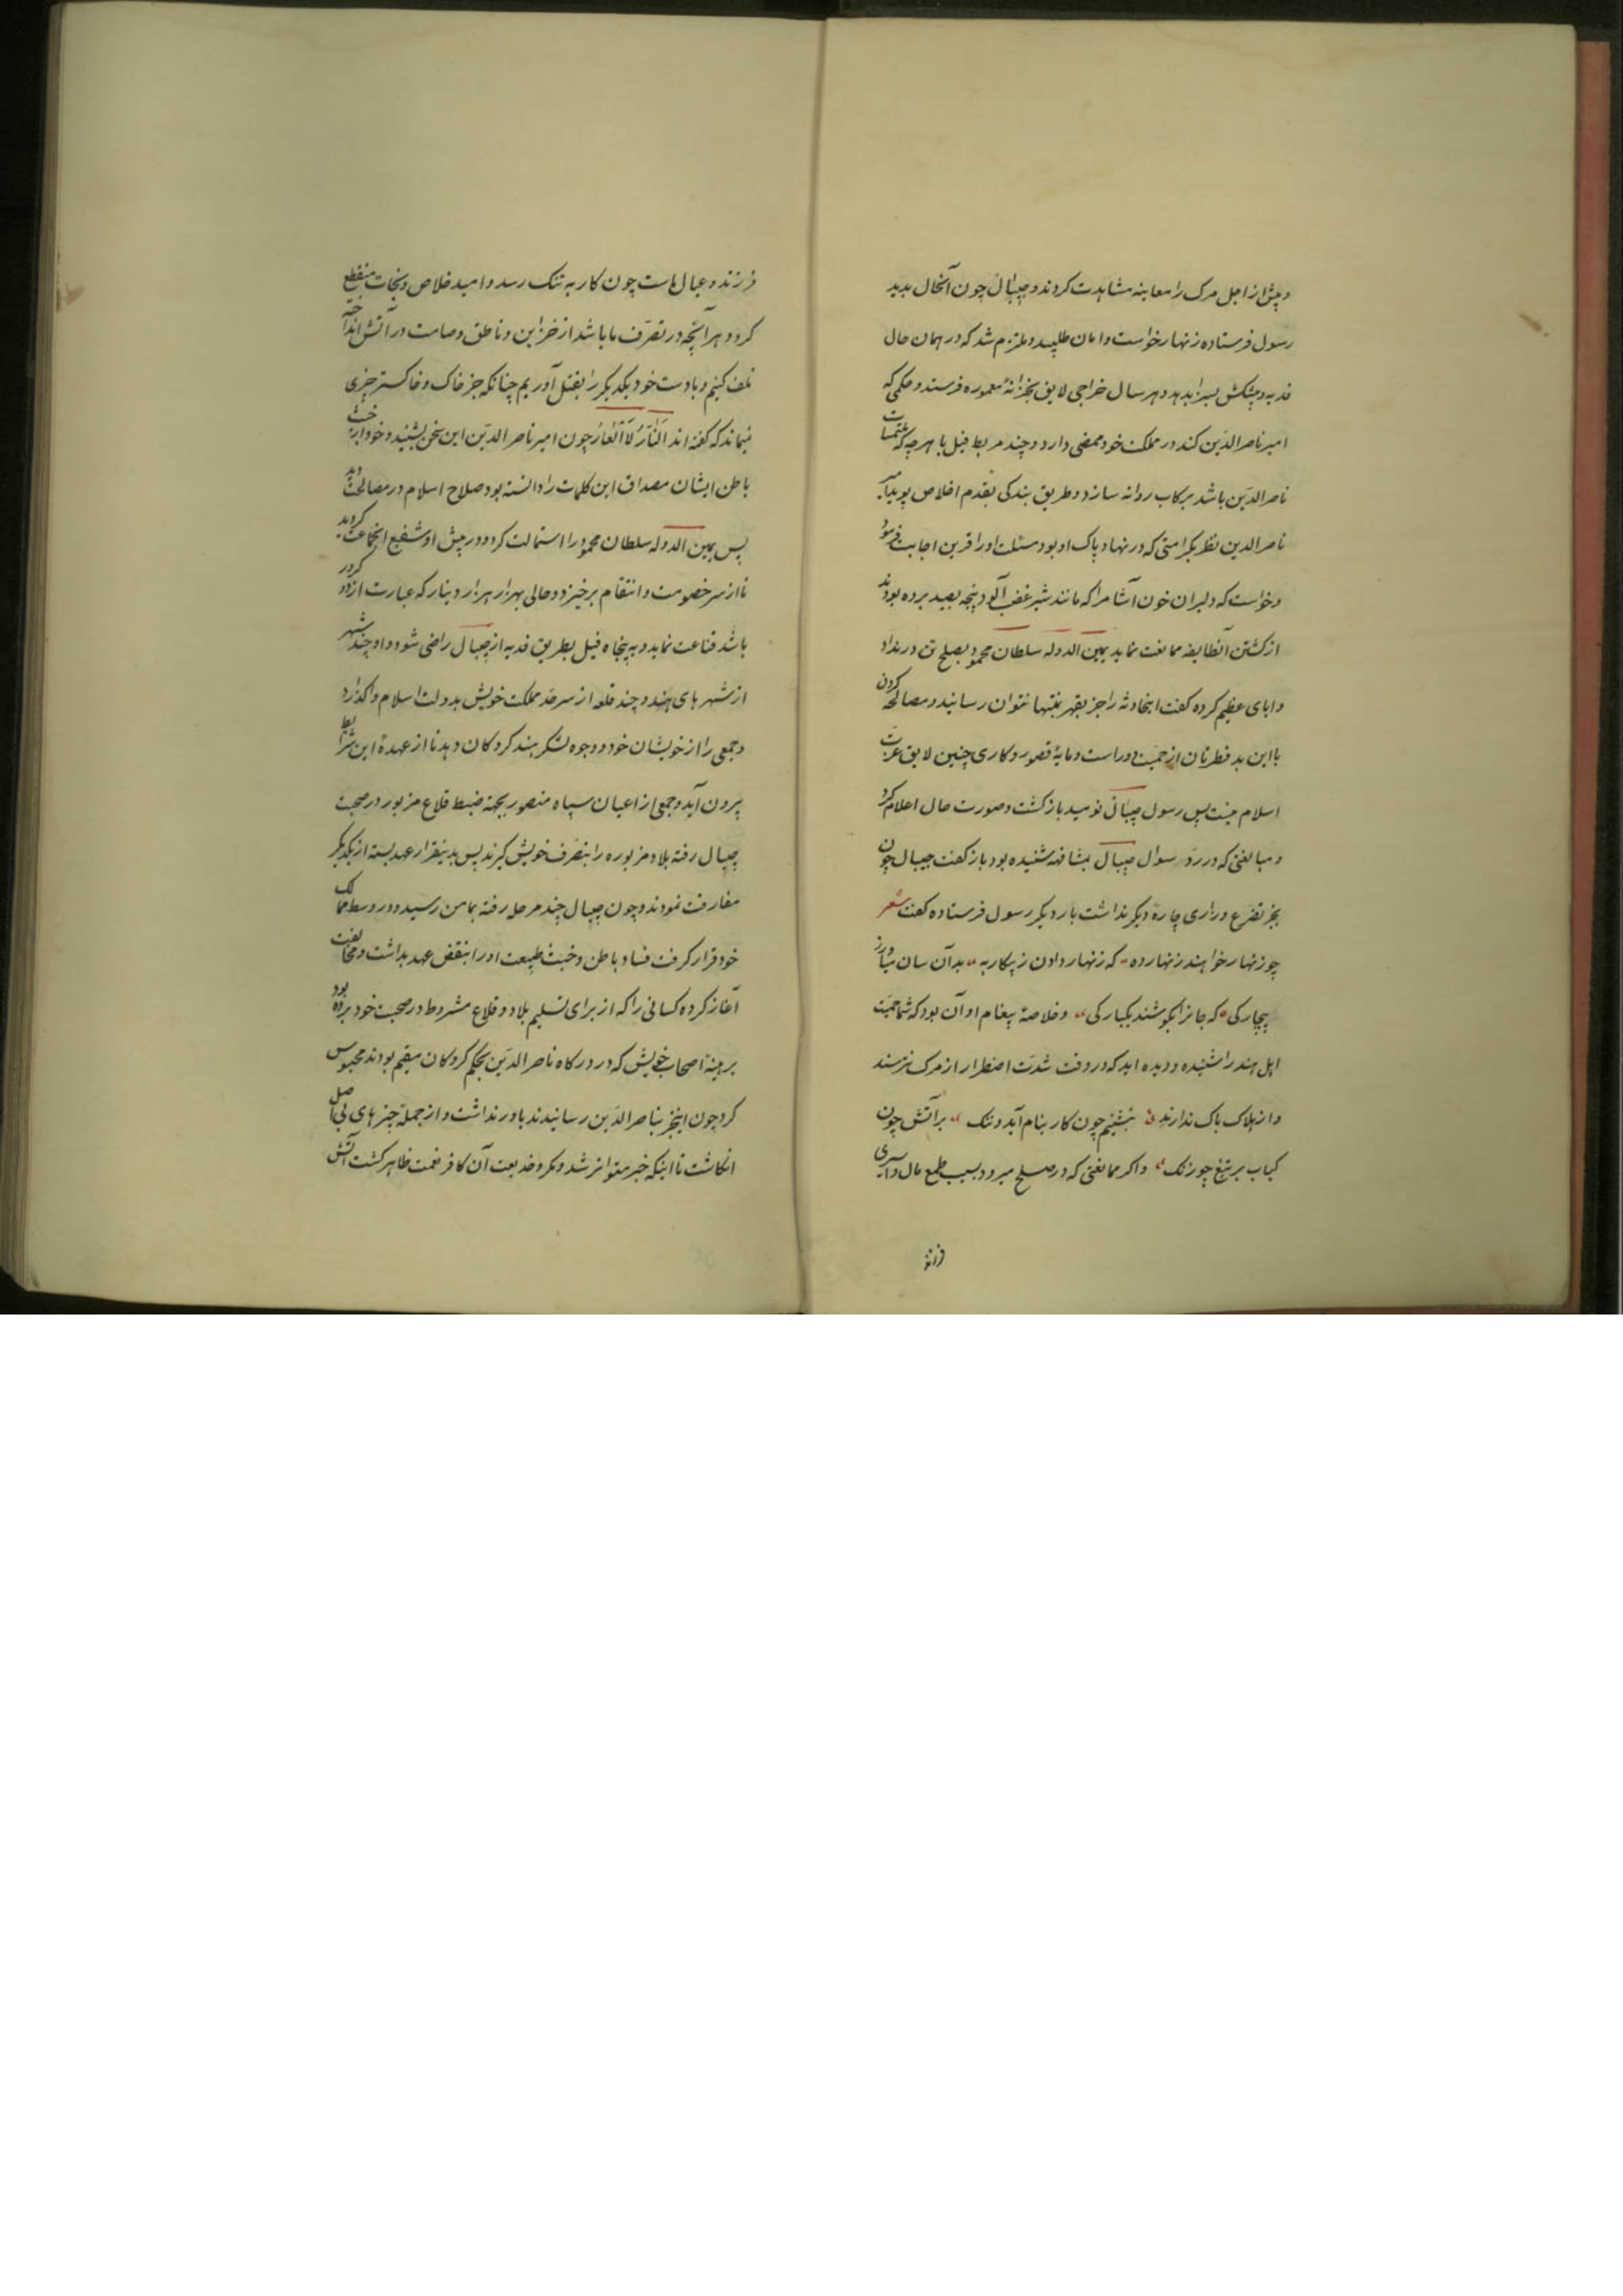 و پیش از اجل مرک را معاینه مشاهدت کردند و جیپال چون آنحال بدید
رسول فرستاده زنهار خواست و امان طلبید و ملتزم شد که در همان حال
فدیه و پیشکش بسزا بدهد و هر سال خراجی لایق بخزانهٔ معموره فرستد و حکمی که
امیر ناصر الدّین کند در مملکت خود ممضی دارد و چند مربط فیل با هر چه که ملتمسات
ناصر الدّین باشد برکاب روانه سازد و طریق بندکی بقدم اخلاص پوید امیر
ناصر الدین نظر بکرامتی که در نهاد پاک او بود مسئلت او را قرین اجابت فرمود
و خواست که دلیران خون آشام را که مانند شیر غضب آلود پنجه بصید برده بودند
از کشتن آنطایفه ممانعت نماید یمین الدوله سلطان محمود بصلح تن در نداد
و ابای عظیم کرده کفت اینحادثه را جز بقهر بمنتها نتوان رسانید و مصالحه کردن
با این بد فطرتان از حمیّت دور است و مایهٔ قصور و کاری چنین لایق عزّت
اسلام نیست پس رسول جیپال نومید بازکشت و صورت حال اعلام کرد
و مبالغتی که در ردّ سوال جیپال بمشافهه شنیده بود باز کفت جیپال چون
بجز تضرّع و زاری چارهٔ دیکر نداشت بار دیکر رسول فرستاده کفت شعر
چو زنهار خواهند زنهار ده که زنهار دادن ز پیکار به بدآن سان میاور ز
بیچارکی که جانرا بکوشند یکبارکی و خلاصهٔ پیغام او آن بود که شما حمیّت
اهل هند را شنیده و دیده اید که در وقت شدّت اضطرار از مرک نترسند
و از هلاک باک ندارند نشینم چون کار بنام آید و ننک بر آتش چون
کباب بر تیغ چو رنک و اکر ممانعتی که در صلح میرود بسبب طمع مال و اسیری
فرزند
فرزند و عیال ماست چون کار به تنک رسد و امید خلاص و نجات منقطع
کردد هر آنچه در تصرّف ما باشد از خزاین و ناطق و صامت در آتش انداخته
تلف کنیم و با دست خود یکدیکر را بقتل آوریم چنانکه جز خاک و خاکستر چیزی
نماند که کفته اند اَلنّارُ لَا اَلْعارُ چون امیر ناصر الدّین این سخن بشنید و خود از خبث
باطن ایشان مصداق این کلمات را دانسته بود صلاح اسلام در مصالحت دید
پس یمین الدوله سلطان محمود را استمالت کرد و در پیش او شفیع انجماعت کردید
تا از سر خصومت و انتقام برخیزد و حالی بهزار هزار دینار که عبارت از دو کرور
باشد قناعت نماید و به پنجاه فیل بطریق فدیه از جیپال راضی شود و او چند شهر
از شهر های هند و چند قلعه از سرحد مملکت خویش بدولت اسلام واکذارد
و جمعی را از خویشان خود و وجوه لشکر هند کروکان دهد تا از عهدهٔ این شرایط
بیرون آید و جمعی از اعیان سپاه منصور بجهة ضبط قلاع مزبور در صحبت
جیپال رفته بلاد مزبوره را بتصرّف خویش کیرند پس بدینقرار عهد بسته از یکدیکر
مفارقت نمودند و چون جیپال چند مرحله رفته بمامن رسید و در وسط ممالک
خود قرار کرفت فساد باطن و خبث طبیعت او را بنقض عهد بداشت و مخالفت
آغاز کرده کسانی را که از برای تسلیم بلاد و قلاع مشروط در صحبت خود برده بود
برهینهٔ اصحاب خویش که در درکاه ناصر الدّین بحکم کروکان مقیم بودند محبوس
کرد چون اینخبر بناصر الدّین رسانیدند باور نداشت و از جملهٔ چیز های بی اصل
انکاشت تا اینکه خبر متواتر شد و مکر و خدیعت آن کافر نعمت ظاهر کشت آتش